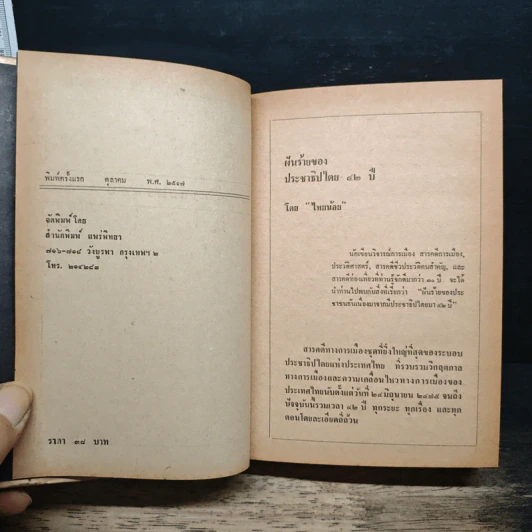 พิมพ์ครั้งแรก ตุลาคม พ.ศ. ๒๕๑๗
จัดพิมพ์โดย
สำนักพิมพ์ แพร่พิทยา
๗๑๖-๗๑๘ วังบูรพา กรุงเทพฯ ๒
โทร. ๒๑๔๒๘๓
ราคา ๓๘ บาท
ฝันร้ายของ
ประชาธิปไตย ๔๒ ปี
โดย "ไทยน้อย"
นักเขียนวิจารณ์การเมือง สารคดีการเมือง,
ประวัติศาสตร์, สารคดีชีวประวัติคนสำคัญ, และ
สารคดีท่องเที่ยวที่ท่านรู้จักดีมากว่า ๓๐ ปี จะได้
นำท่านไปพบกับสิ่งที่เรียกว่า "ฝันร้ายของประ
ชาชนอันเนื่องมาจากมีประชาธิปไตยมา ๔๒ ปี"
สารคดีทางการเมืองชุดที่ยิ่งใหญ่ที่สุดของระบอบ
ประชาธิปไตยแห่งประเทศไทย ที่รวบรวมวิกฤตกาล
ทางการเมืองและความเคลื่อนไหวทางการเมืองของ
ประเทศไทยนับตั้งแต่วันที่ ๒๔ มิถุนายน ๒๔๗๕ จนถึง
ปัจจุบันนี้รวมเวลา ๔๒ ปี ทุกระยะ ทุกเรื่อง และทุก
ตอนโดยละเอียดถี่ถ้วน